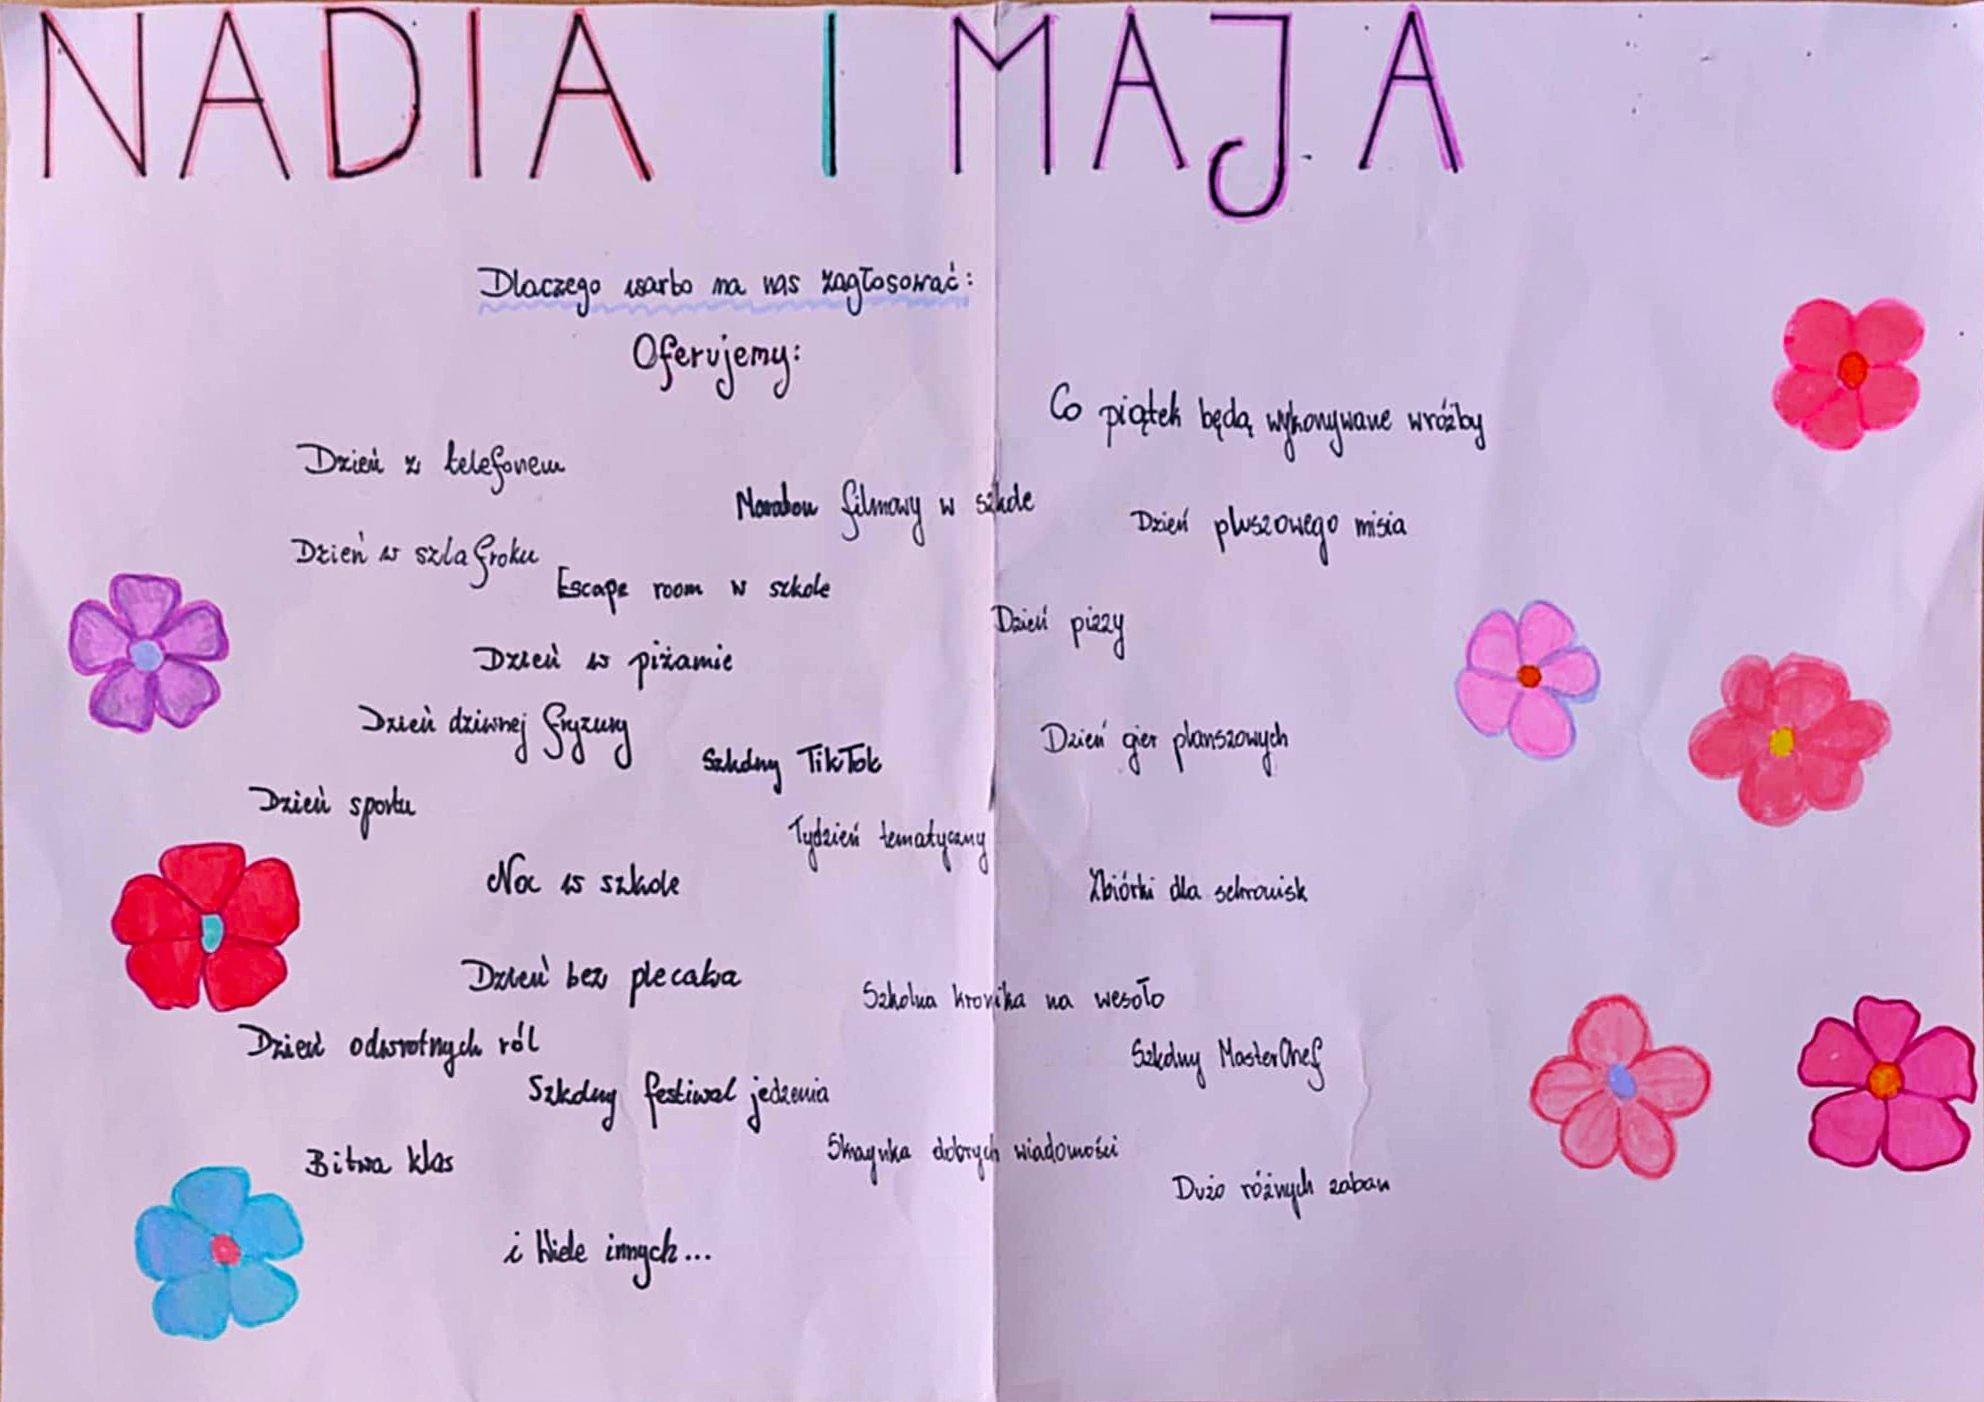 NADIA I MAJA
Dlaczego warto na nas zagłosować:
Oferujemy:
Co piątek będą wykonywane wróżby
Dzień z telefonem
Maraton filmowy w szkole
Dzień pluszowego misia
Dzień w szlafroku
Escape room w szkole
Dzień pizzy
Dzień w piżamie
Dzień dziwnej fryzury
Szkolny TikTok
Dzień gier planszowych
Dzień sportu
Tydzień tematyczny
Noc w szkole
Zbiórki dla schronisk
Dzień bez plecaka
Szkolna kronika na wesoło
Dzień odwrotnych ról
Szkolny MasterChef
Szkolny festiwal jedzenia
Bitwa klas
Skrzynka dobrych wiadomości
Dużo różnych zabaw
i Wiele innych...